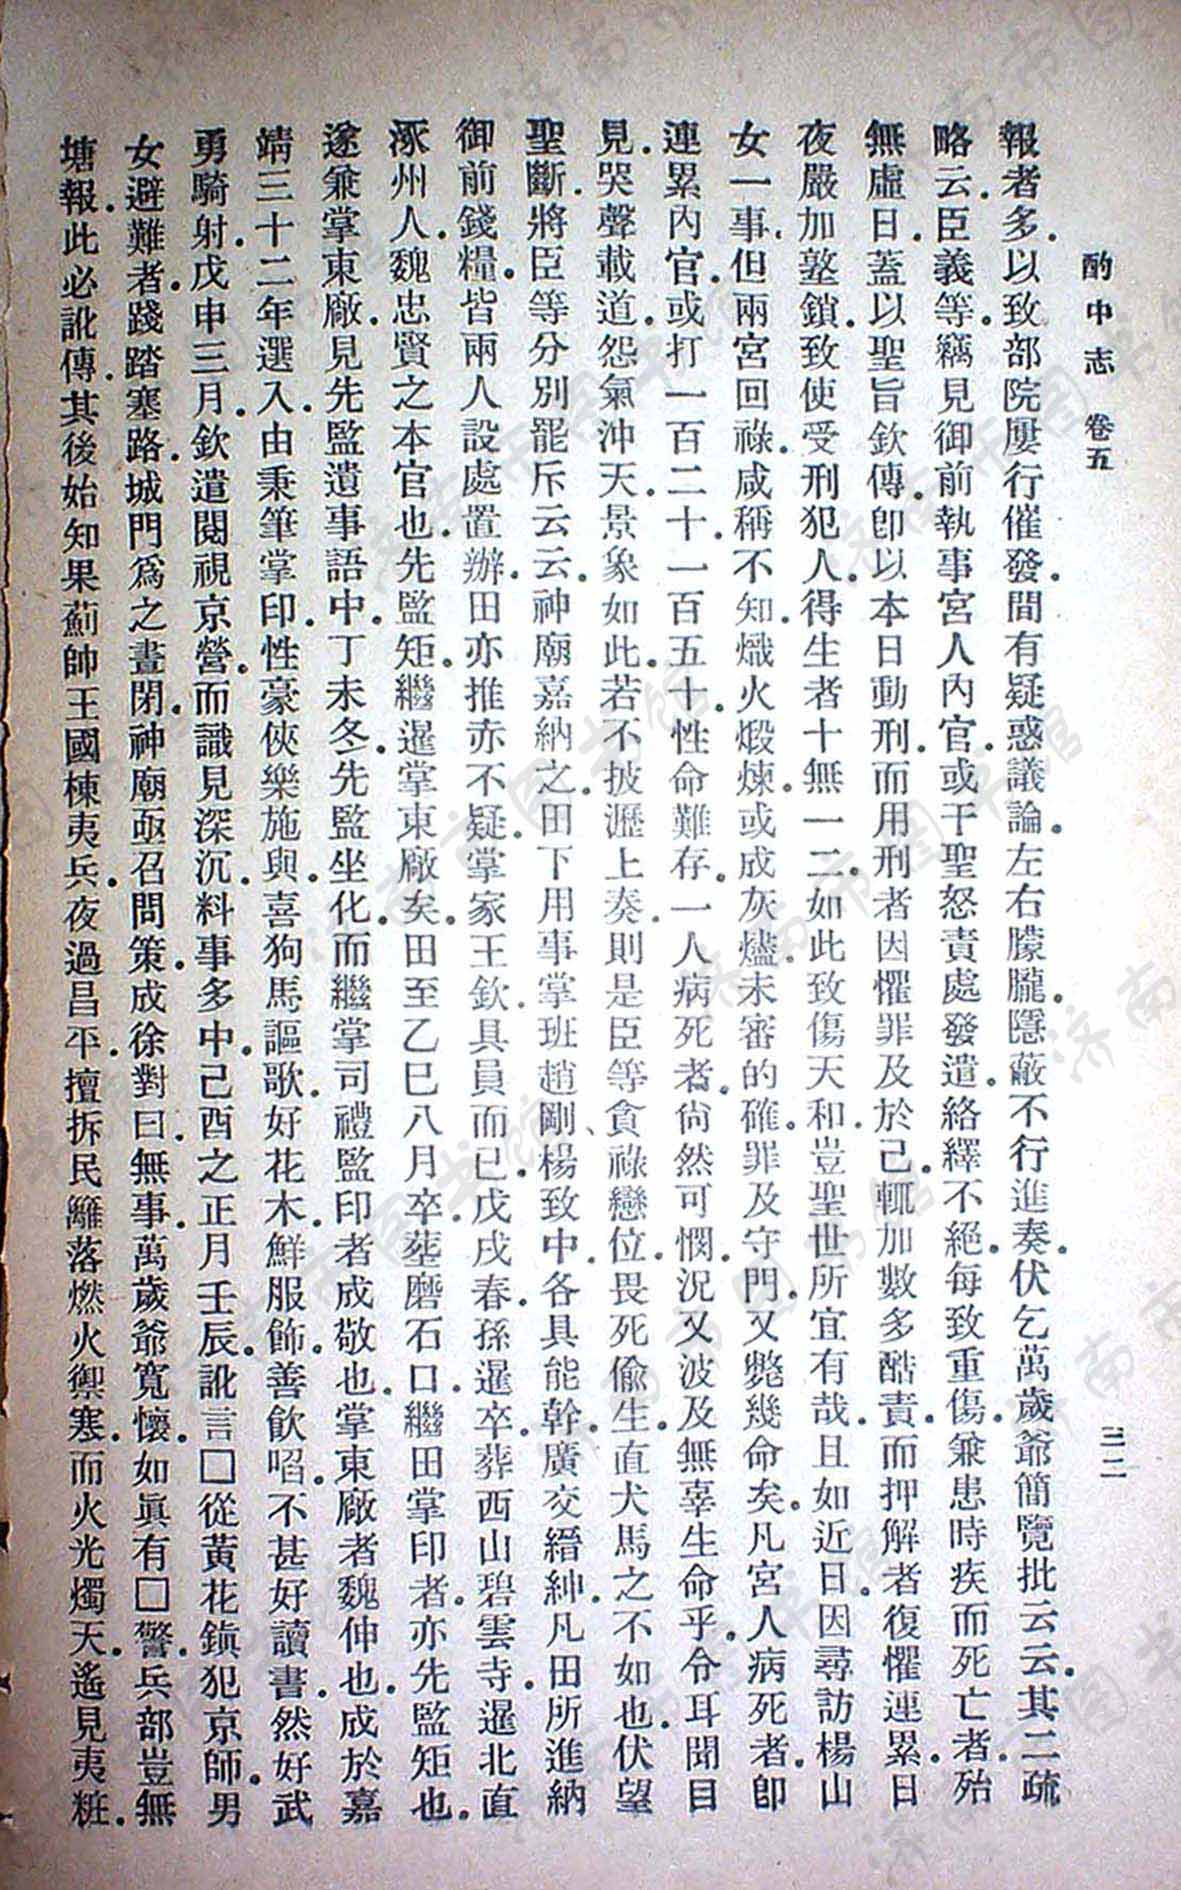 酌中志 卷五 三二
報者多.以致部院屢行催發.間有疑惑議論.左右朦朧.隱蔽不行進奏.伏乞萬歲爺簡覽批云云.其二疏
略云.臣義等.竊見御前執事宮人內官.或干聖怒責處發遣.絡繹不絕.每致重傷.兼患時疾而死亡者.殆
無虛日.蓋以聖旨欽傳.卽以本日動刑.而用刑者因懼罪及於己.輒加數多酷責.而押解者復懼連累.日
夜嚴加墪鎖.致使受刑犯人.得生者十無一二.如此致傷天和.豈聖世所宜有哉.且如近日.因尋訪楊山
女一事.但兩宮回祿.咸稱不知.熾火煅煉.或成灰燼.未審的確.罪及守門.又斃幾命矣.凡宮人病死者.卽
連累內官.或打一百二十.一百五十.性命難存.一人病死者.尙然可憫.況又波及無辜生命乎.今耳聞目
見.哭聲載道.怨氣沖天.景象如此.若不披瀝上奏.則是臣等貪祿戀位.畏死偷生.直犬馬之不如也.伏望
聖斷.將臣等分別罷斥云云.神廟嘉納之.田下用事掌班趙剛、楊致中.各具能幹.廣交縉紳.凡田所進納
御前錢糧.皆兩人設處置辦.田亦推赤不疑.掌家王欽.具員而已.戊戌春.孫暹卒.葬西山碧雲寺.暹北直
涿州人.魏忠賢之本官也.先監矩.繼暹掌東廠矣.田至乙巳八月卒.塟磨石口.繼田掌印者.亦先監矩也.
遂兼掌東廠.見先監遺事語中.丁未冬.先監坐化.而繼掌司禮監印者成敬也.掌東廠者魏伸也.成於嘉
靖三十二年選入.由秉筆掌印.性豪俠樂施與.喜狗馬謳歌.好花木.鮮服飾.善飲啗.不甚好讀書.然好武
勇騎射.戊申三月.欽遣閱視京營.而識見深沉.料事多中.己酉之正月壬辰.訛言□從黃花鎮犯京師.男
女避難者.踐踏塞路.城門爲之晝閉.神廟亟召問策.成徐對曰.無事.萬歲爺寬懷.如眞有□警.兵部豈無
塘報.此必訛傳.其後始知果薊帥王國棟夷兵.夜過昌平.擅拆民籬落燃火禦寒.而火光燭天.遙見夷粧.